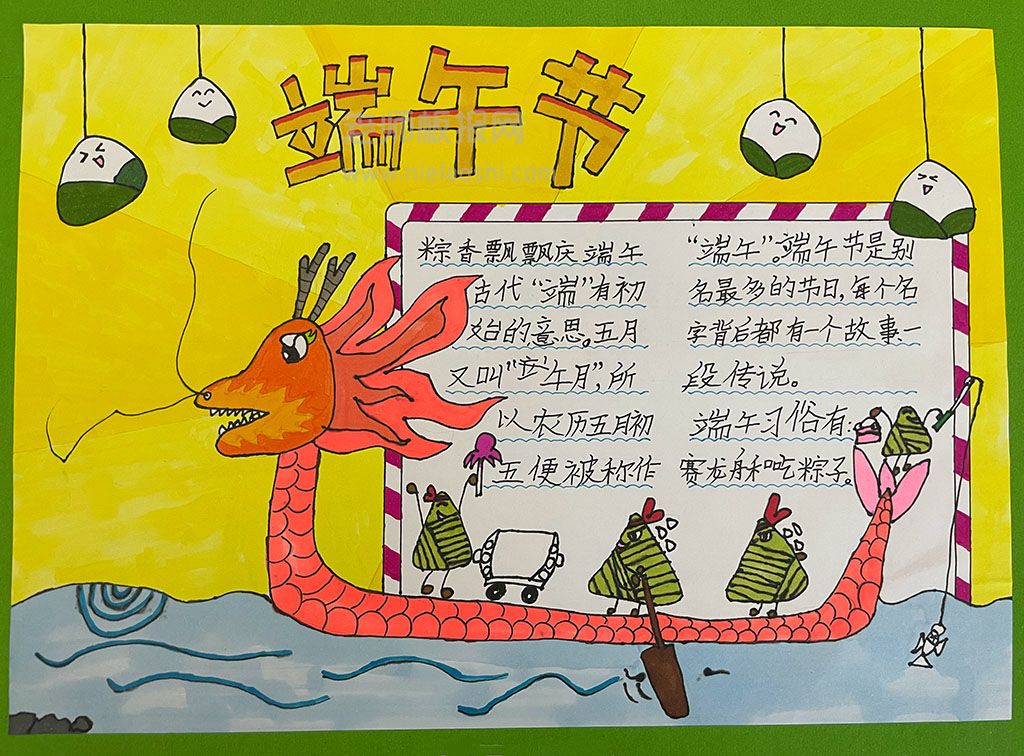 端午节
www.nielaoshi.com
粽香飘飘庆端午
古代“端”有初
始的意思。五月
又叫“午月”,所
以农历五月初
五便被称作
“端午”。端午节是别
名最多的节日,每个名
字背后都有一个故事一
段传说。
端午习俗有:
赛龙舟和吃粽子。